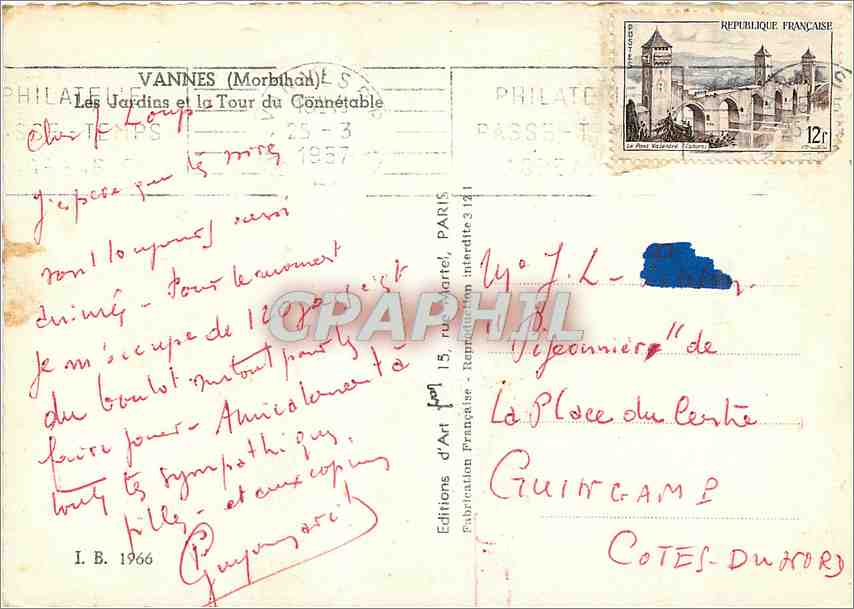 VANNES (Morbihan)
Les Jardins et la Tour du Connétable
PHILATELIE
PASSE-TEMPS
25-3
1957
PHILATELIE
PASSE-TEMPS
REPUBLIQUE FRANÇAISE
POSTES
Le Pont Valentré (Cahors)
12F
Cher J. Loup
J'espère que tes
sont toujours aussi
animés - Pour le moment
Je m'occupe de 120 c'est
du boulot surtout pour les
faire jouer - Amicalement à
toutes tes sympathiques
filles - et aux copains
I. B. 1966
Editions d'Art 15, rue Martel, PARIS
Fabrication Française - Reproduction interdite 3 12 1
CPAPHIL
Mr J. L -
"Pigeonnier" de
La Place du Centre
GUINGAMP
COTES-DU NORD